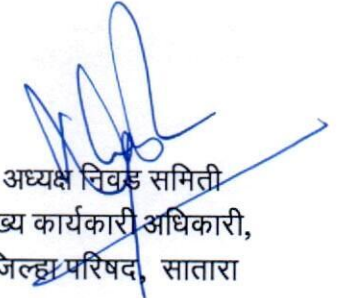 अध्यक्ष निवड समिती
ख्य कार्यकारी अधिकारी,
जिल्हा परिषद, सातारा